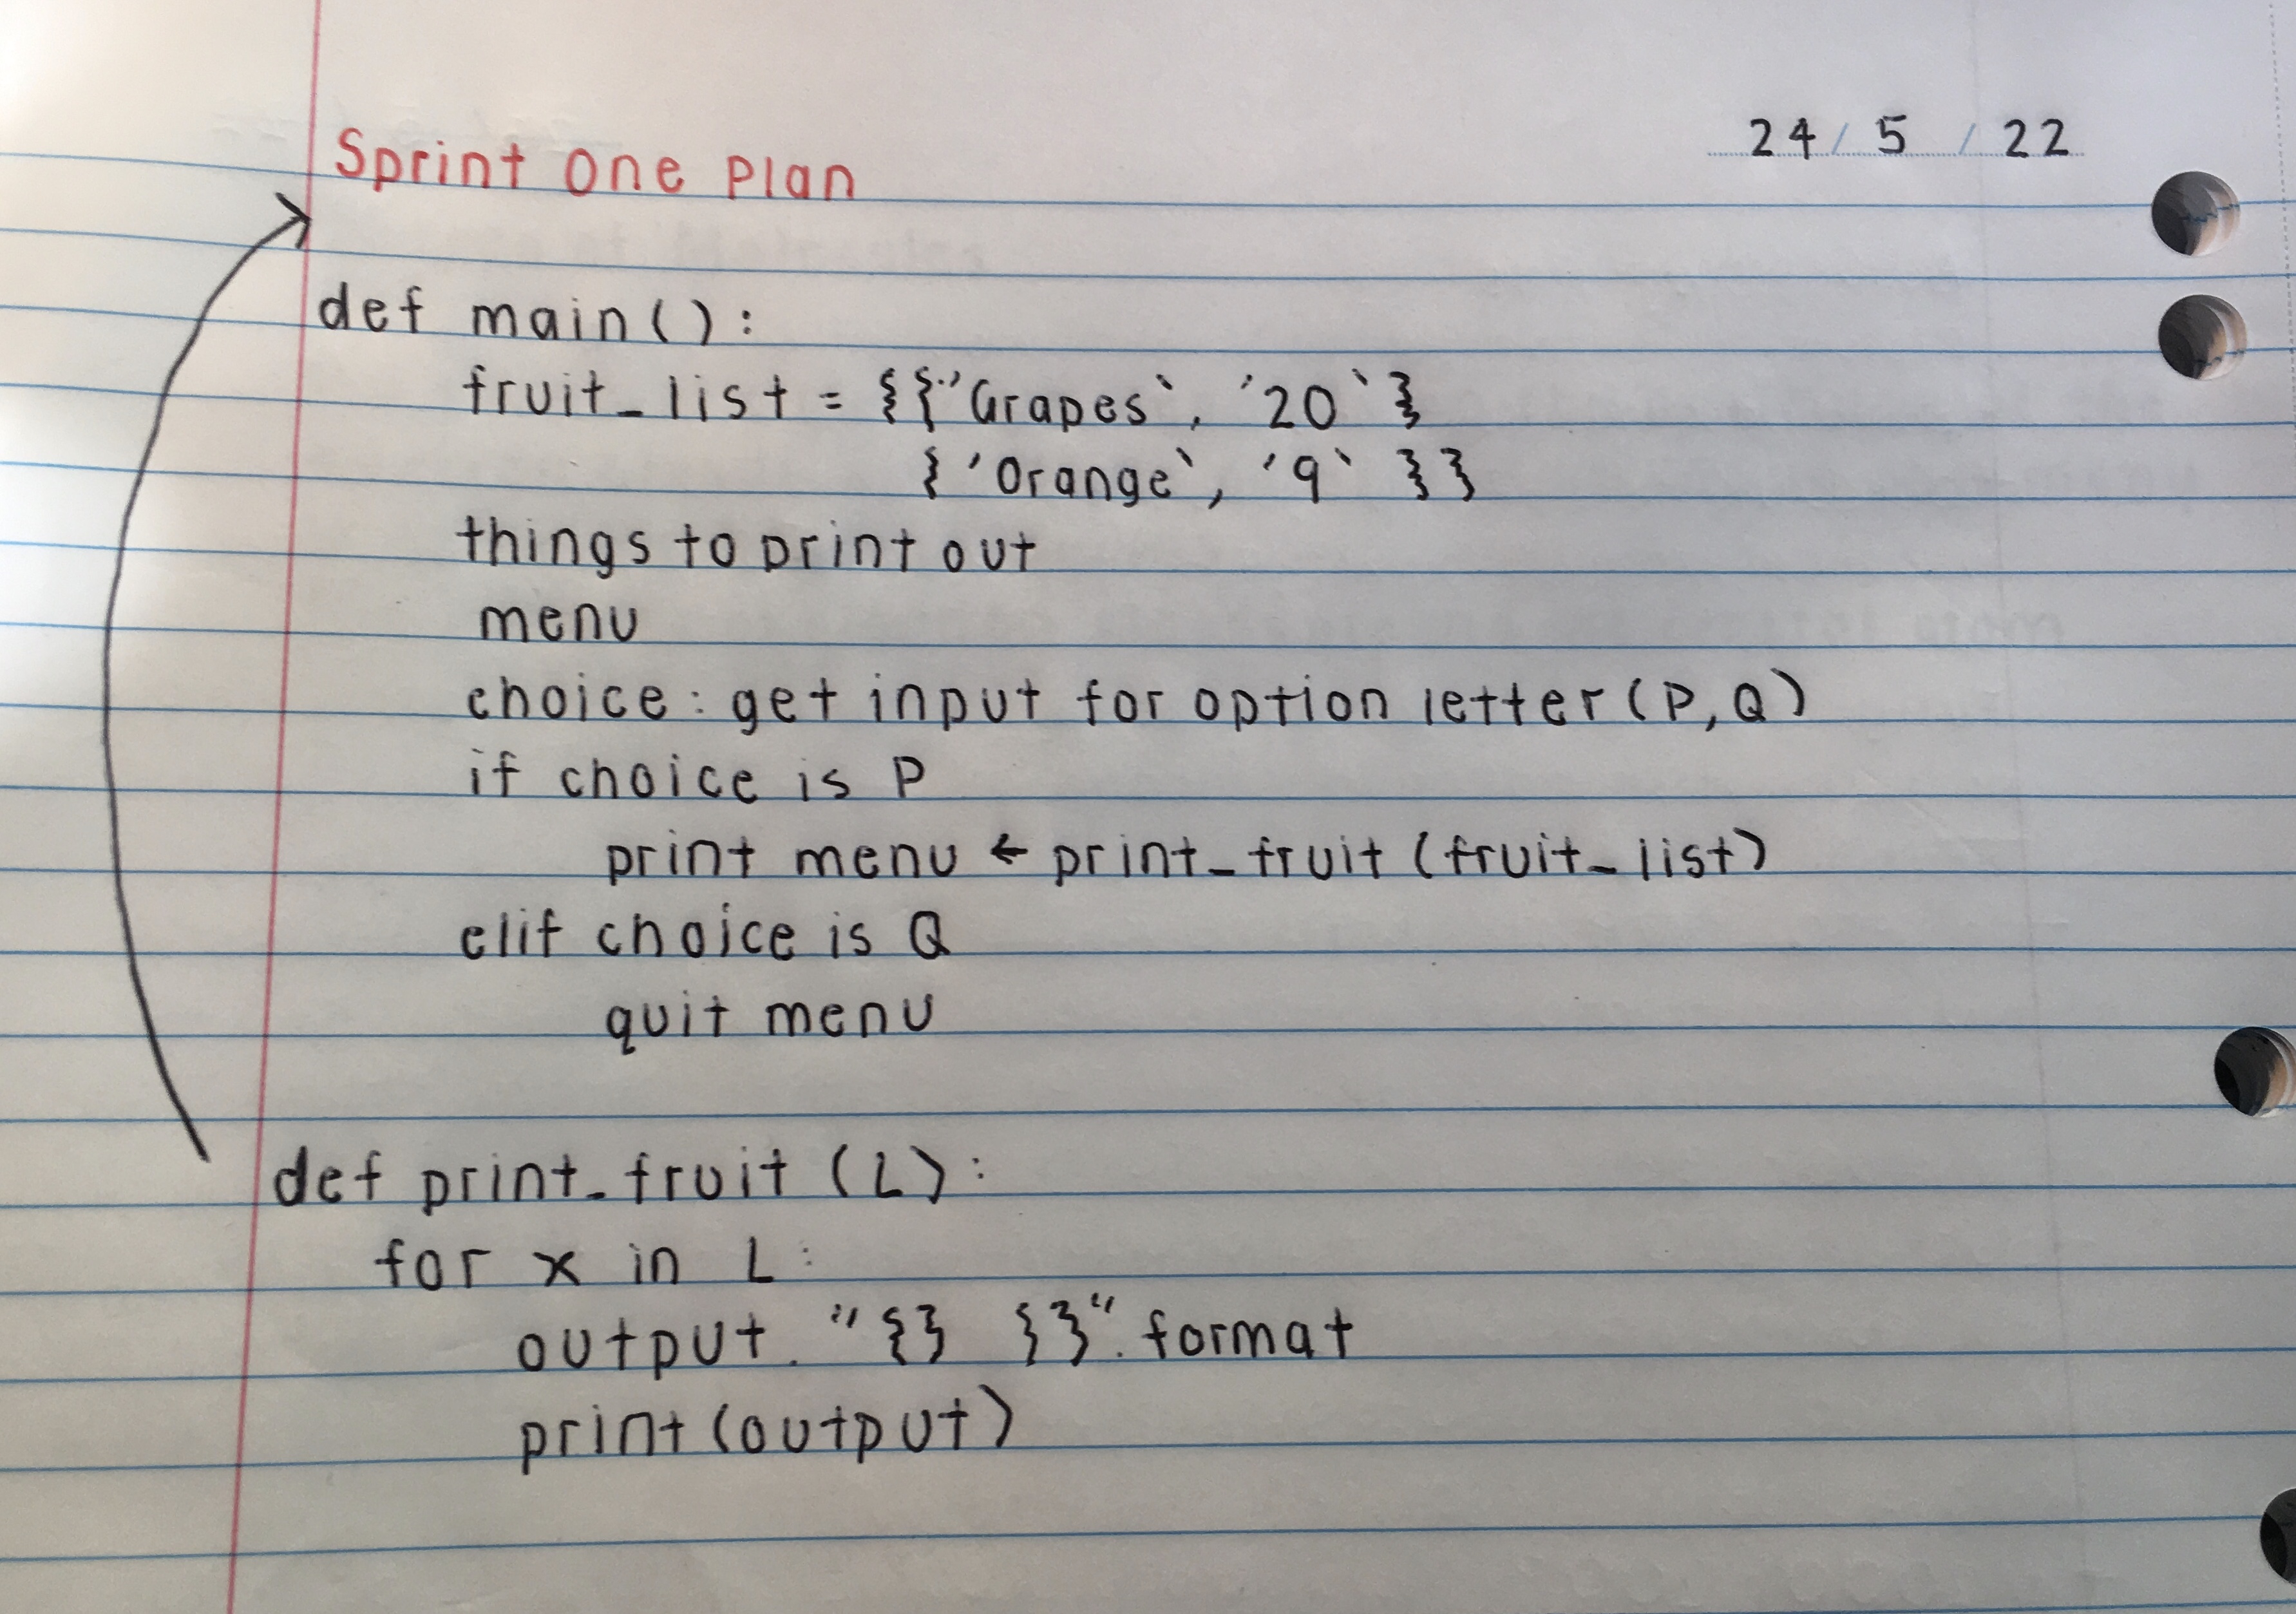 Sprint One Plan
24 / 5 / 22
def main():
fruit_list = {{'Grapes', '20'}
{'Orange', '9' }}
things to print out
menu
choice: get input for option letter (P,Q)
if choice is P
print menu ← print_fruit (fruit_list)
elif choice is Q
quit menu
def print_fruit (L):
for x in L:
output. "{} {}".format
print(output)